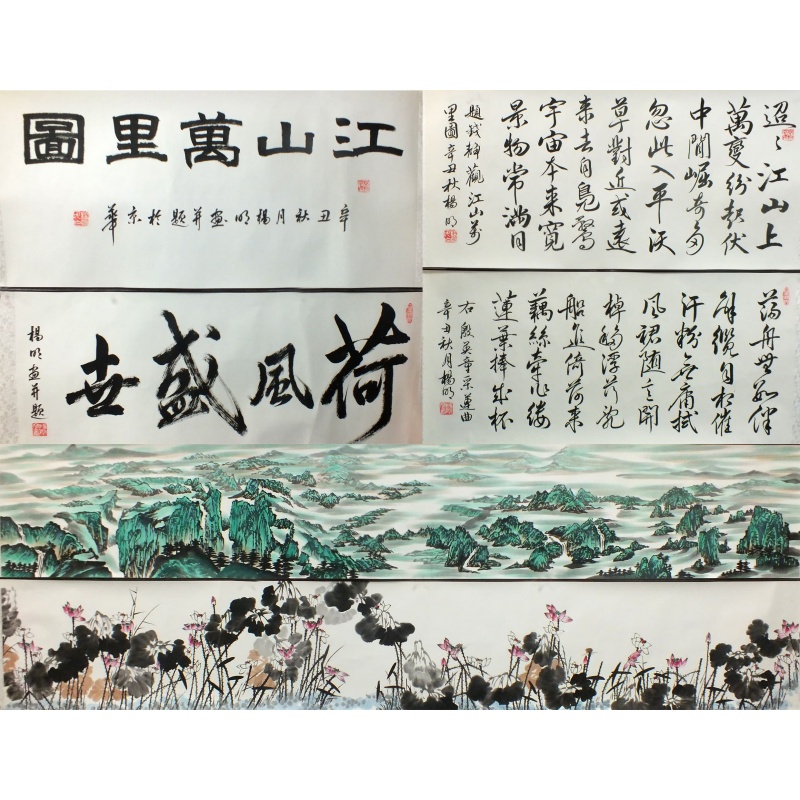 江山萬里圖
辛丑秋月楊明畫并題於京華
荷風盛世
楊明畫并題
迢〻江山上
萬變紛起伏
中間崛奇
忽此入平沃
草樹近或遠
來去自鳧鶩
宇宙本來寬
景物常滿目
題 觀江山萬
里圖 辛丑秋楊明
蕩舟無數伴
解纜自相催
汗粉無庸拭
風裙隨意開
棹移浮荇亂
船進倚荷來
藕絲牽作縷
蓮葉捧成杯
右殷英童采蓮曲
辛丑秋月楊明